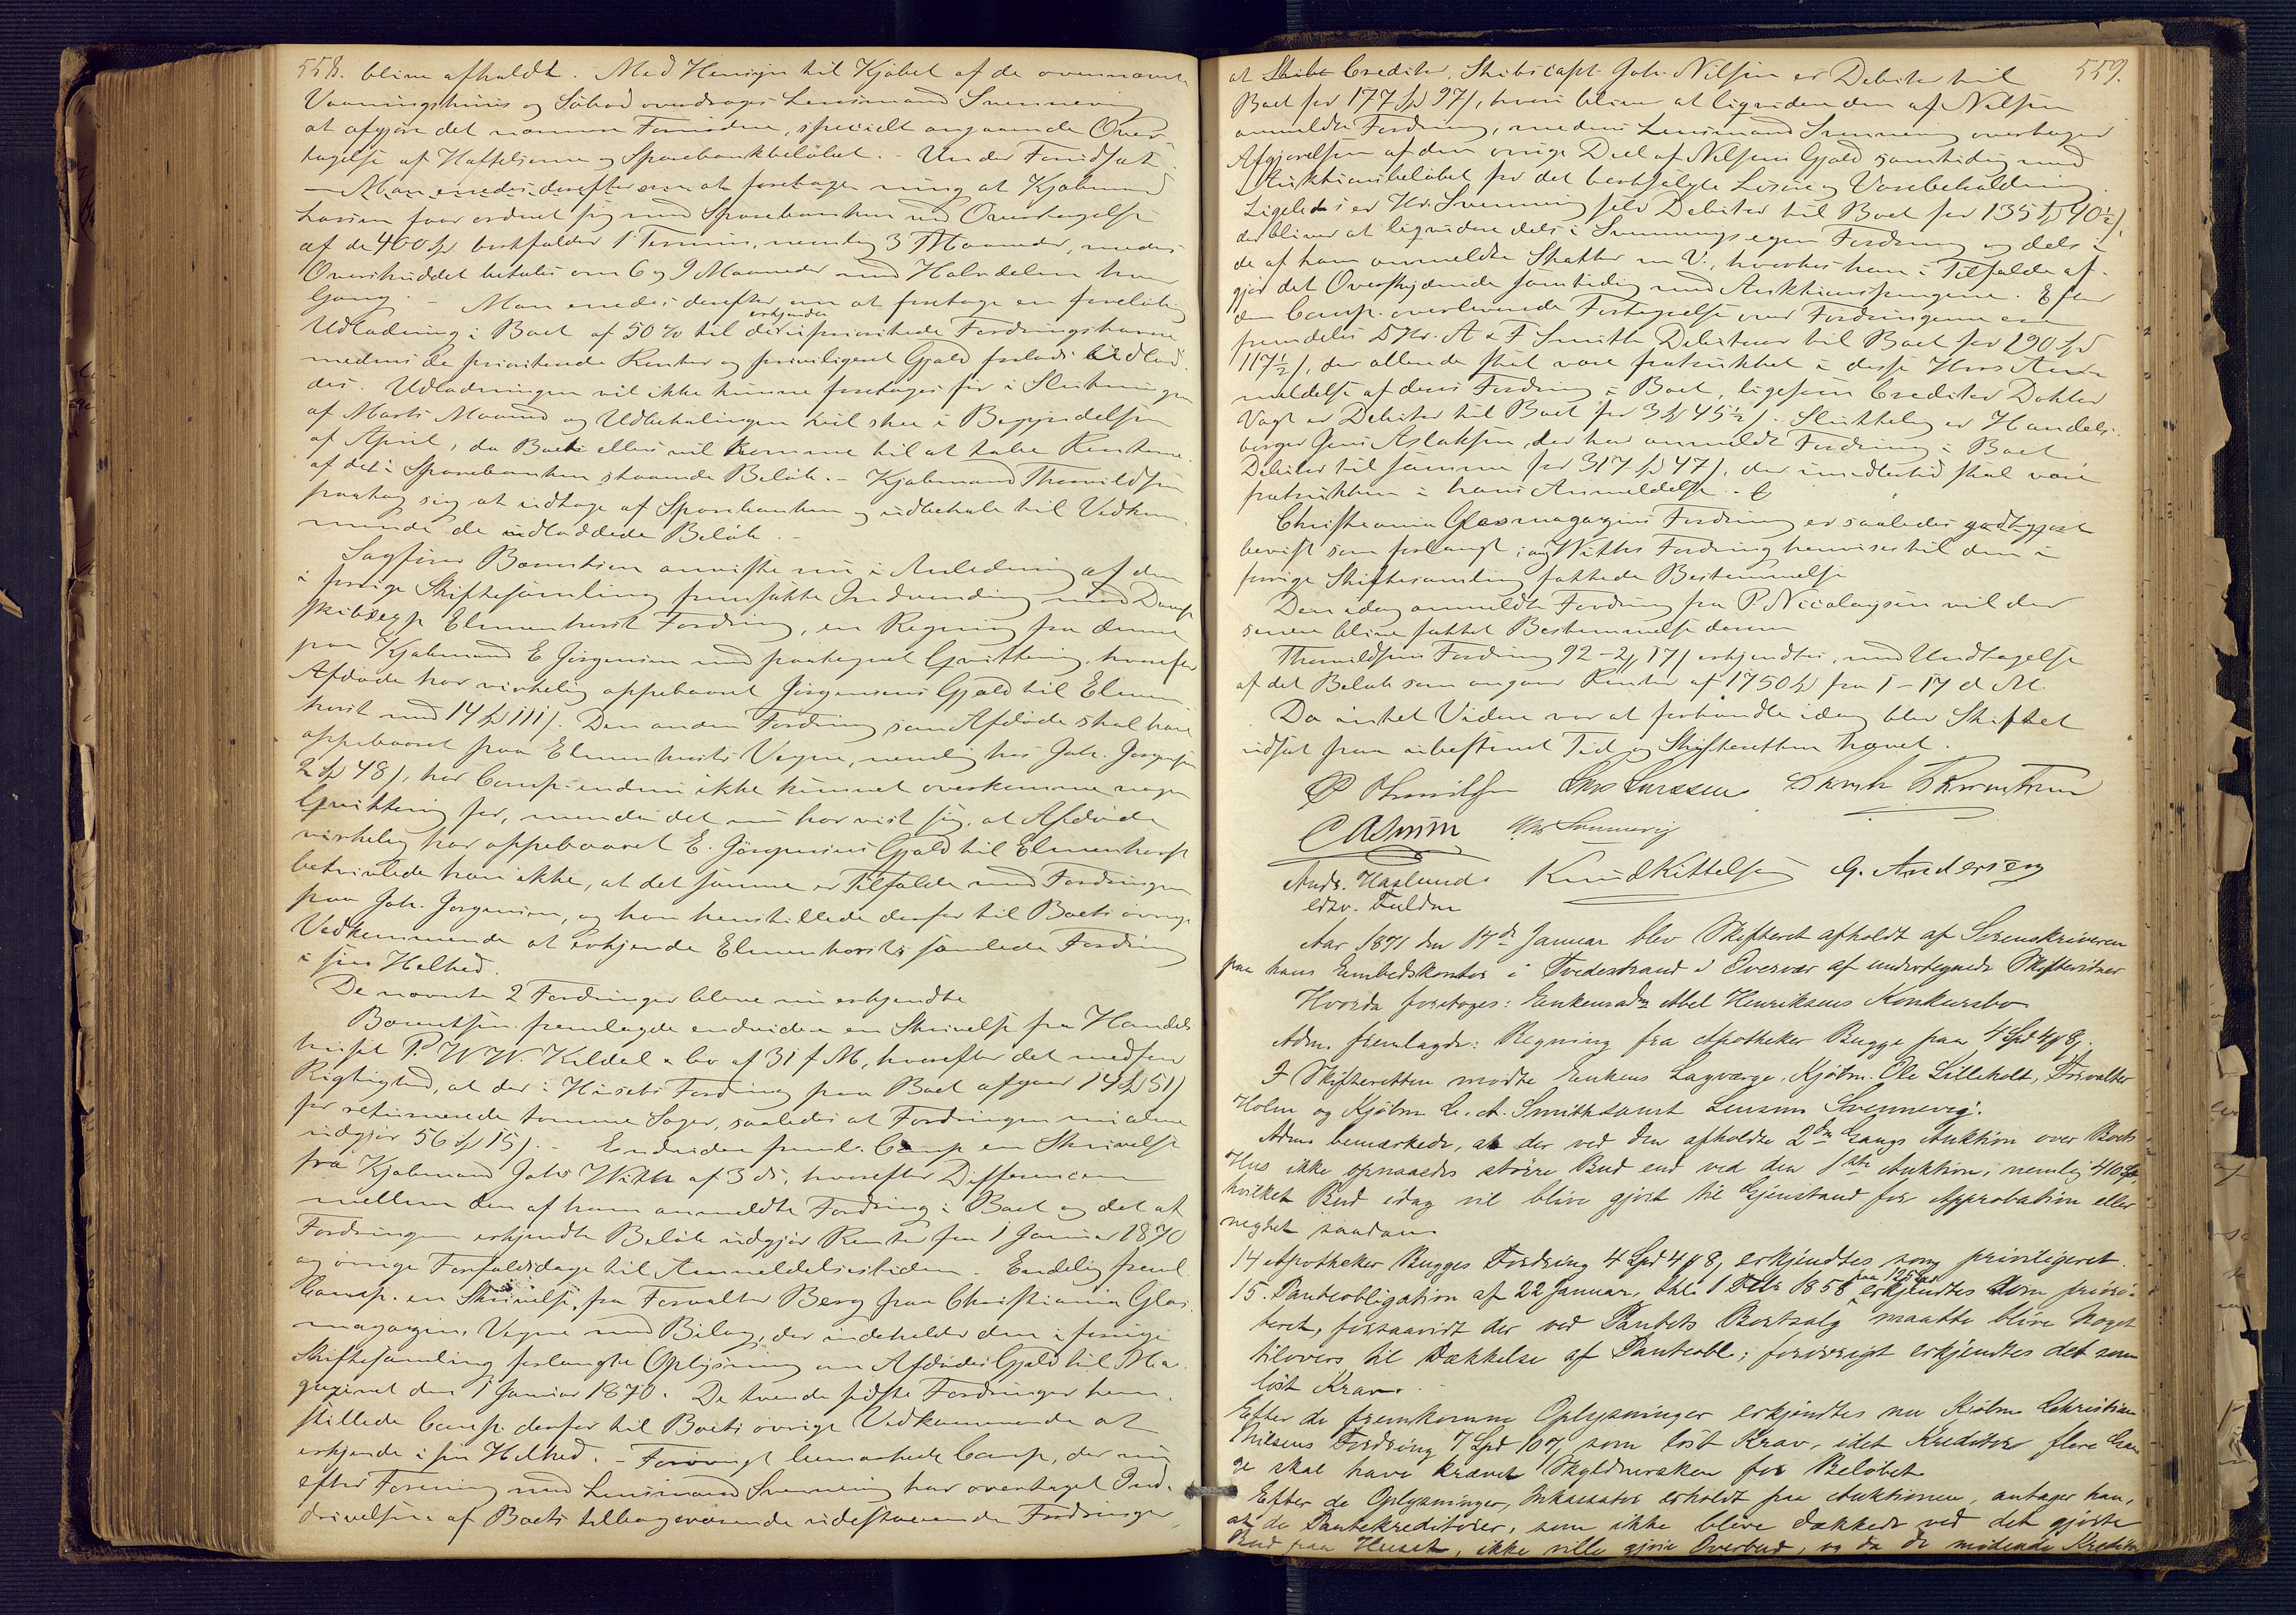 558. blive afholdt. Med Hensyn til Kjøbet af de ovennævnte
Vaaningshuus og Søbod overdroges Lensmand Svennevig
at afgjøre det nærmere Fornødne, specielt angaaende Over-
tagelse af Hæftelserne og Sparebankbeløbet. - Under Forudsætn.
- Man enedes derefter om at foretage ning at Kjøbmand
Larsen faar ordnet sig med Sparebanken ved Overtagelse
af de 400 Spd bortfalder 1 Termin, nemlig 3 Maaneder, medens
Overskuddet betales om 6 og 9 Maaneder med Halvdelen hver
Gang. - Man enedes derefter om at foretage en foreløbig
Udlodning i Boet af 50 % til de erkjendte uprioriterede Fordringshavere
medens de prioriterede Renter og priviligeret Gjæld forlods udlod-
des. Udlodningen vil ikke kunne foretages før i Slutningen
af Marts Maaned og Udbetalingen vil skee i Begyndelsen
af April, da Boet ellers vil komme til at tabe Renterne
af det i Sparebanken staaende Beløb. - Kjøbmand Thorvildsen
paatog sig at udtage af Sparebanken og udbetale til Vedkom-
mende de udloddede Beløb. -
Sagfører Berntsen anviste nu i Anledning af den
i forrige Skiftesamling fremsatte Indvending mod Damp
skibsexp. Elmenhorst Fordring, en Regning fra denne
paa Kjøbmand E Jørgensen med paategnet Qvittering, hvorefter
Afdøde har virkelig oppebaaret Jørgensens Gjæld til Elmen
horst med 14 Spd 111 ß. Den anden Fordring som Afdøde skal have
oppebaaret paa Elmenhorsts Vegne, nemlig hos Joh. Jørgensen
2 Spd 48 ß, har Comp. endnu ikke kunnet overkomme nogen
Qvittering for, men da det nu har vist sig, at Afdøde
virkelig har oppebaaret E. Jörgensens Gjæld til Elmenhorst
betvivlede han ikke, at det samme er Tilfældet med Fordringen
paa Joh. Jørgensen, og han henstillede derfor til Boets øvrige
Vedkommende at erkjende Elmenhorsts samlede Fordring
i sin Helhed.
De nævnte 2 Fordringer bleve nu erkjendte
Berntsen fremlagde endvidere en Skrivelse fra Handels
huset P. W W. Kildal & Co af 31 f M, hvorefter det medfører
Rigtighed, at der i Husets Fordring paa Boet afgaar 14 Spd 51 ß
for returnerede tomme Sager, saaledes at Fordringen nu alene
udgjør 56 Spd 15 ß. - Endvidere freml. Comp en Skrivelse
fra Kjøbmand Johs Witth af 3 ds, hvorefter Differencen
mellem den af ham anmeldte Fordring i Boet og det at
Fordringen erkjendte Beløb udgjør Renter fra 1 Januar 1870
og øvrige Forfaldsdage til Anmeldelsestiden. Endelig freml.
Comp. en Skrivelse fra Forvalter Berg paa Christiania Glas-
magazins Vegne med Bilag, der indeholder den i forrige
Skiftesamling forlangte Oplysning om Afdødes Gjæld til Ma-
gazinet den 1 Januar 1870. De tvende sidste Fordringer hen-
stillede Comp. derfor til Boets øvrige Vedkommende at
erkjende i sin Helhed. - Forøvrigt bemærkede Comp, der nu
efter Forening med Lensmand Svennevig har overtaget Ind-
drivelsen af Boets tilbageværende udestaaende Fordringer,
559.
at Creditor, Skibscapt. Joh. Nilsen er Debitor til
Boet for 177 Spd 97 ß, hvori bliver at liqvidere den af Nilsen
anmeldte Fordring, medens Lensmand Svennevig overtager
Afgjørelsen af den øvrige Deel af Nilsens Gjæld samtidig med
Auktionsbeløbet for det bortsolgte Løsøre og Varebeholdning.
Ligeledes er Hr. Svennevig selv Debitor til Boet for 135 Spd 40½ ß,
der bliver at liqvidere dels i Svennevigs egen Fordring og dels i
de af ham anmeldte Skatter m V., hvorhos han i Tilfælde af-
gjør det Overskydende samtidig med Auktionspengene. Efter
den Comp. overleverede Fortegnelse over Fordringerne ere
fremdeles DHr. A & F Smith Debitorer til Boet for 290 Spd
117½ ß, der allerede skal være fratrukket i disse Herrers An-
meldelse af deres Fordring i Boet, ligesom Creditor Doktor
Vogt er Debitor til Boet for 3 Spd 45½ ß. Sluttelig er Handels-
borger Jens Aslaksen, der har anmeldt Fordring i Boet
Debitor til samme for 317 Spd 47 ß, der imidlertid skal være
fratrukken i hans Anmeldelse. -
Christiania Glasmagazins Fordring er saaledes godtgjort
bevist som forlangt; ang Witths Fordring henvises til den i
forrige Skiftesamling fattede Bestemmelse
Den idag anmeldte Fordring fra P. Nicolaysen vil der
senere blive fattet Bestemmelse derom
Thorvildsens Fordring 92 - 2 ₰ 17 ß erkjendtes, med Undtagelse
af det Beløb som angaar Renter af 1750 Spd fra 1 - 17 d M.
Da intet Videre var at forhandle idag blev Skiftet
udsat paa ubestemt Tid og Skifteretten hævet.
P Thorvildsen Lars Larssen
C A Smith Svennevig
Andr. Haslund Knud Kittelsen G. Andersen
edsv. Fuldm
Aar 1871 den 17de Januar blev Skifteret afholdt af Sorenskriveren
paa hans Embedskontor i Tvedestrand i Overvær af undertegnede Skiftevidner
Hvorda foretoges: Enkemadm Abel Henriksens Konkursbo
Adm. fremlagde: Regning fra Apotheker Bugge paa 4 Spd 4 ₰ 8 ß.
I Skifteretten mødte Enkens Lagværge, Kjøbm. Ole Lilleholt, Forvalter
Holm og Kjøbm C. A. Smith samt Lensm Svennevig.
Adm bemærkede, at der ved den afholdte 2den Gangs Auktion over Boets
Hus ikke opnaaedes større Bud end ved den 1ste Auktion, nemlig 410 Spd,
hvilket Bud idag vil blive gjort til Gjenstand for Approbation eller
negtet saadan.
14 Apotheker Bugges Fordring 4 Spd 4 ₰ 8 ß erkjendtes som priviligeret.
15. Panteobligation af 22 Januar, thl. 1 Febr 1858 paa 125 Spd erkjendtes som priori-
teret, forsaavidt der ved Pantets Bortsalg maatte blive Noget
tilovers til Dækkelse af Panteobl; forøvrigt erkjendtes det som
løst Krav.
Efter de fremkomne Oplysninger erkjendtes nu Kjøbm Christian
Nilsens Fordring 7 Spd 107 ß som løst Krav, idet Kreditor flere Gan
ge skal have krævet Skyldnersken for Beløbet.
Efter de Oplysninger, Inkassator erholdt paa Auktionen, antager han,
at de Pantekreditorer, som ikke bleve dækkede ved det gjorte
Bud paa Huset, ikke ville gjøre Overbud, og da de mødende Kredito